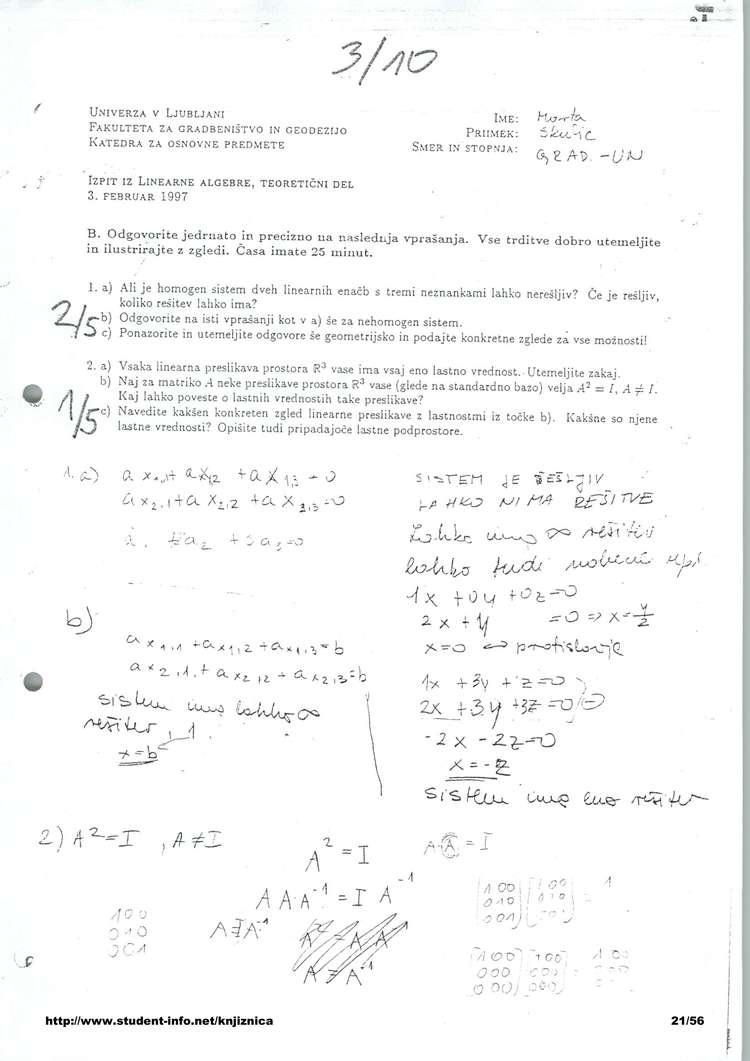 3/10
UNIVERZA V LJUBLJANI
FAKULTETA ZA GRADBENIŠTVO IN GEODEZIJO
KATEDRA ZA OSNOVNE PREDMETE
IME:
PRIIMEK:
SMER IN STOPNJA: GRAD. - UN
IZPIT IZ LINEARNE ALGEBRE, TEORETIČNI DEL
3. FEBRUAR 1997
B. Odgovorite jedrnato in precizno na naslednja vprašanja. Vse trditve dobro utemeljite
in ilustrirajte z zgledi. Časa imate 25 minut.
1. a) Ali je homogen sistem dveh linearnih enačb s tremi neznankami lahko nerešljiv? Če je rešljiv,
koliko rešitev lahko ima?
2/5
b) Odgovorite na isti vprašanji kot v a) še za nehomogen sistem.
c) Ponazorite in utemeljite odgovore še geometrijsko in podajte konkretne zglede za vse možnosti!
2. a) Vsaka linearna preslikava prostora R³ vase ima vsaj eno lastno vrednost. Utemeljite zakaj.
b) Naj za matriko A neke preslikave prostora R³ vase (glede na standardno bazo) velja A² = I, A ≠ I.
Kaj lahko poveste o lastnih vrednostih take preslikave?
1/5
c) Navedite kakšen konkreten zgled linearne preslikave z lastnostmi iz točke b). Kakšne so njene
lastne vrednosti? Opišite tudi pripadajoče lastne podprostore.
1. a)
SISTEM JE REŠLJIV
LAHKO NIMA REŠITVE
Lahko ima ∞ rešitev
lahko tudi nobene npr.
1x + 0y + 0z = 0
2x + y = 0 => x = y/2
x = 0 <=> protislovje
b)
a x₁,₁ + a x₁,₂ + a x₁,₃ = b
a x₂,₁ + a x₂,₂ + a x₂,₃ = b
sistem ima lahko ∞
rešitev, 1
x = b
1x + 3y + z = 0
2x + 3y + 3z = 0
-2x - 2z = 0
x = -z
sistem ima eno rešitev
2) A² = I , A ≠ I
A² = I
A A A⁻¹ = I A⁻¹
1 0 0
0 1 0
0 0 1
http://www.student-info.net/knjiznica
21/56